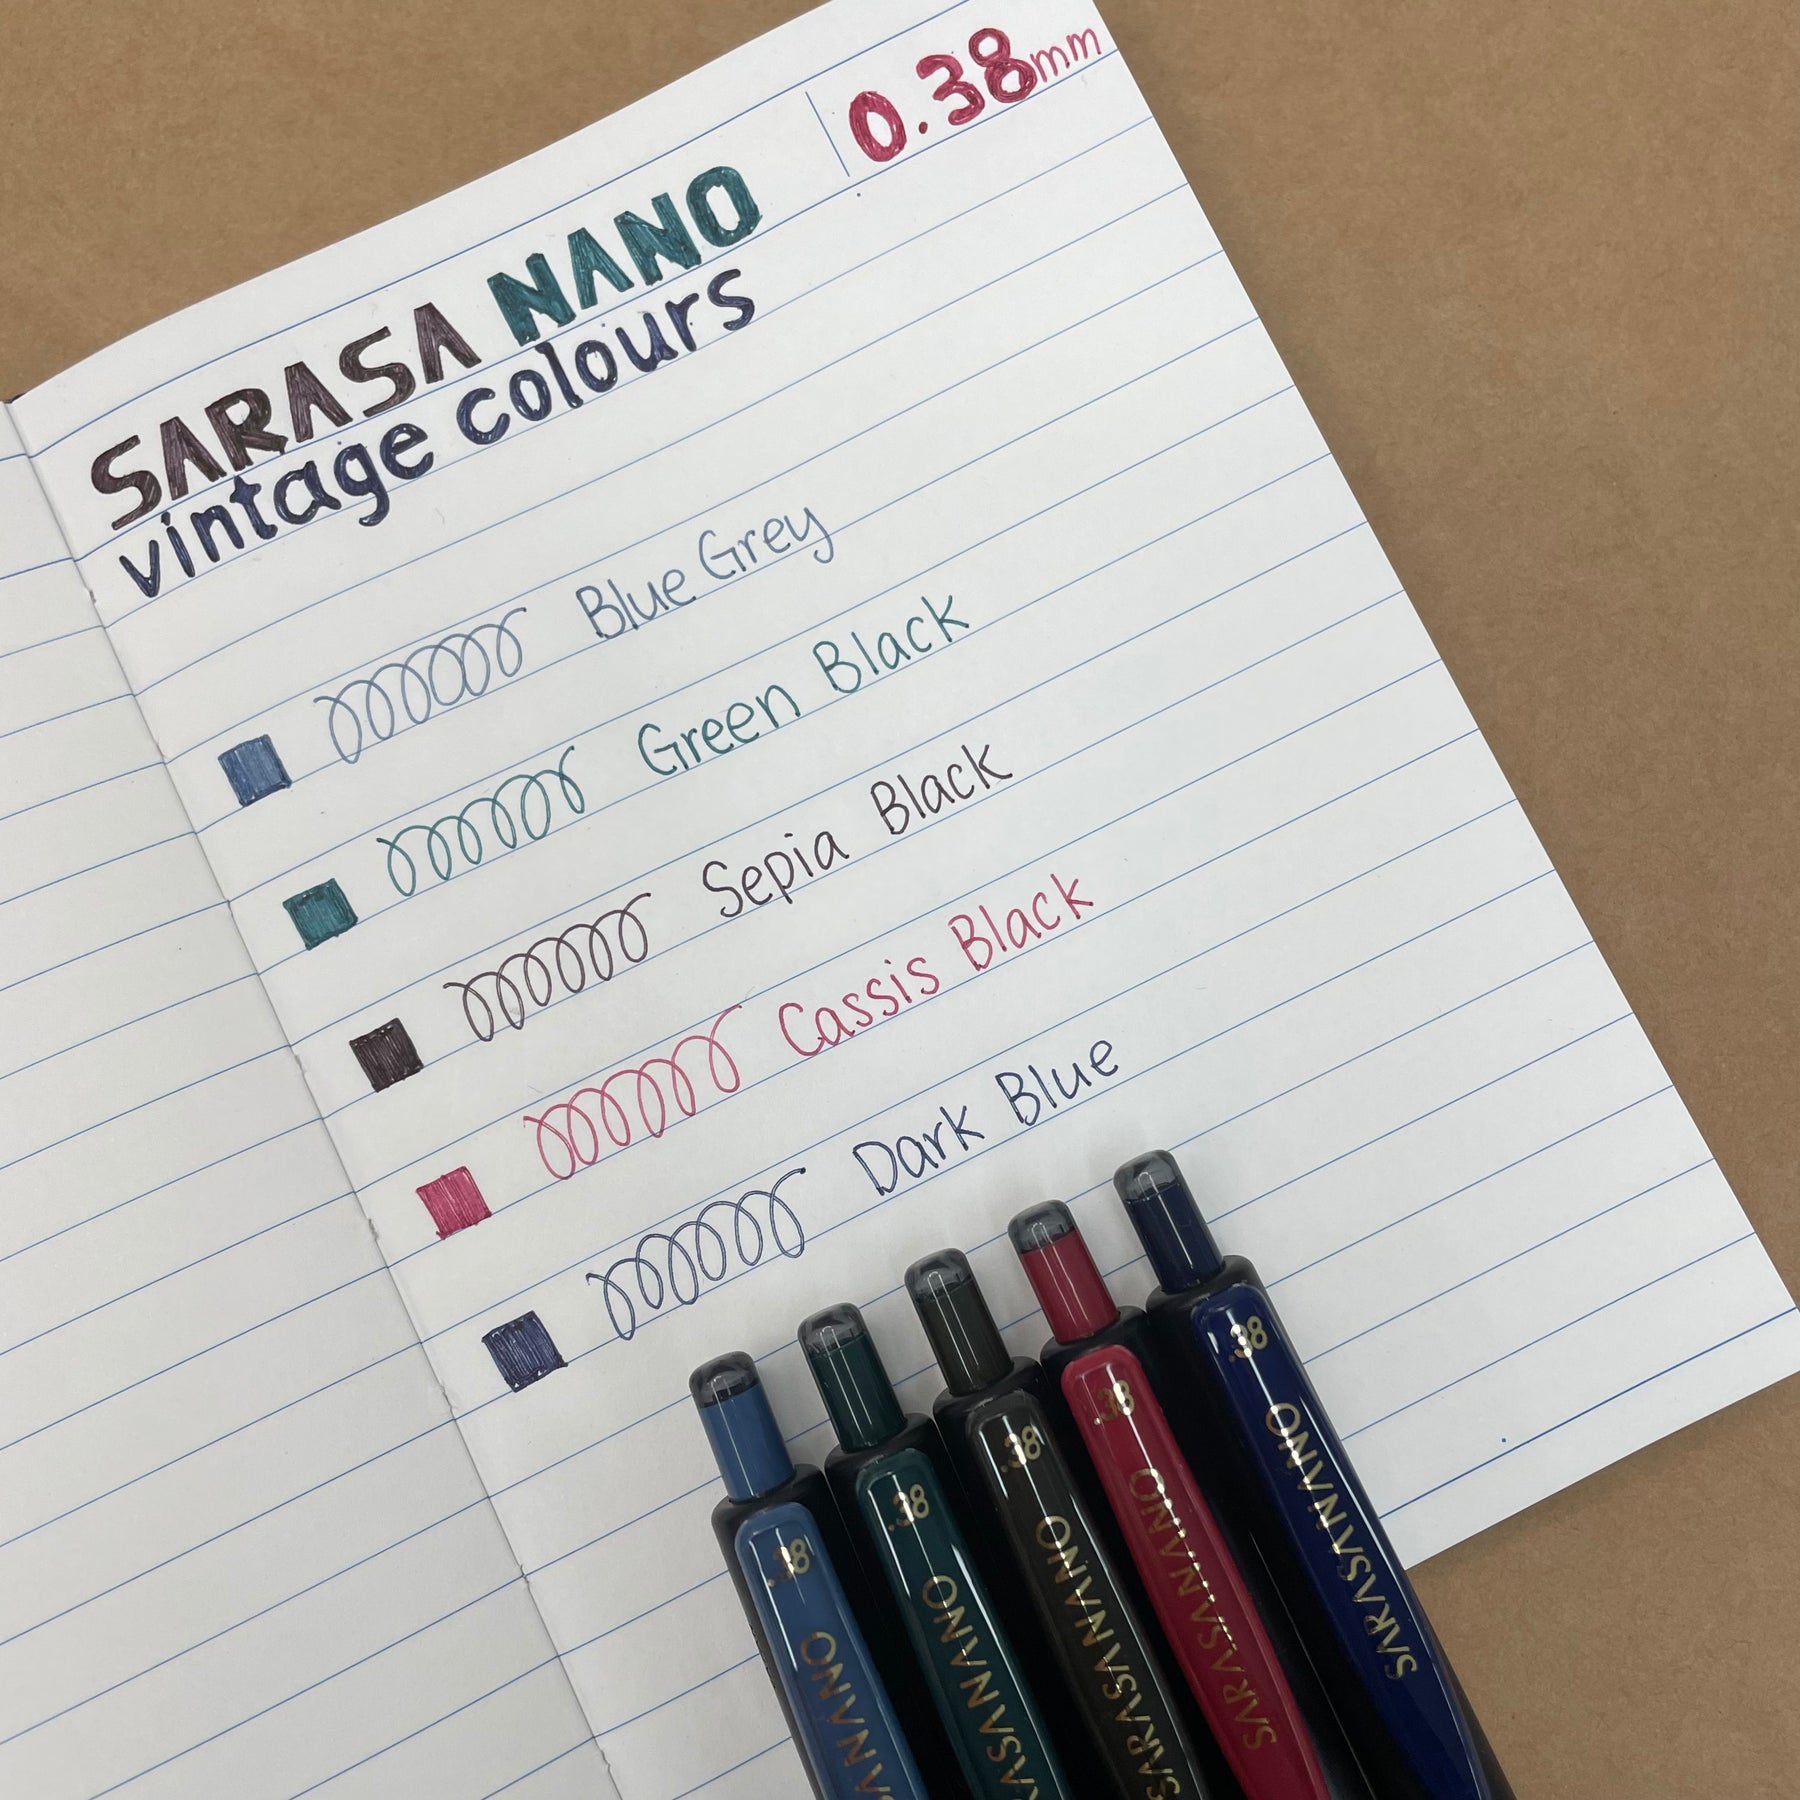 0.38mm
SARASA NANO
vintage colours
Blue Grey
Green Black
Sepia Black
Cassis Black
Dark Blue
.38 SARASANANO
.38 SARASANANO
.38 SARASANANO
.38 RASANANO
.38 SANANO